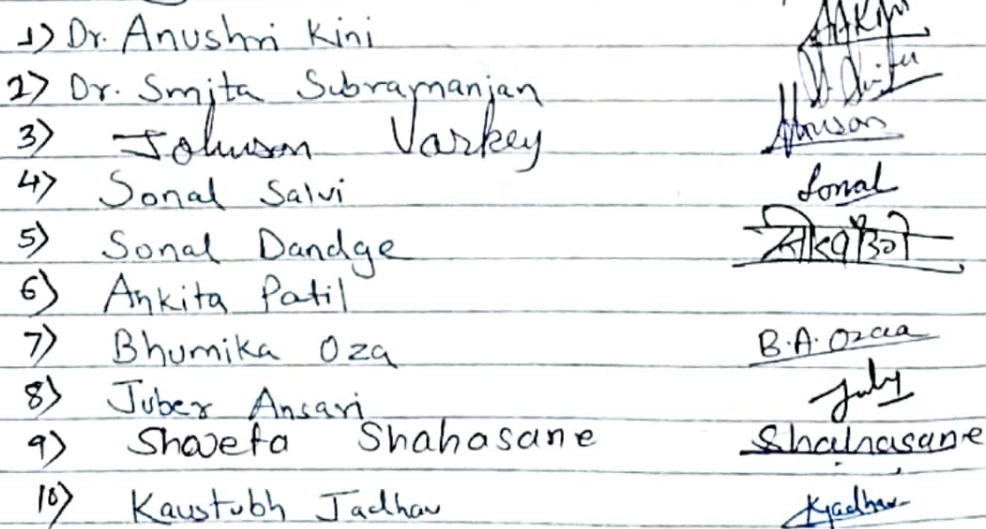 1) Dr. Anushri Kini
2) Dr. Smita Subramanian
3) Johnson Varkey
4) Sonal Salvi Sonal
5) Sonal Dandge
6) Ankita Patil
7) Bhumika Oza B.A. Ozaa
8) Juber Ansari
9) Shweta Shahasane Shahasane
10) Kaustubh Jadhav Kjadhav